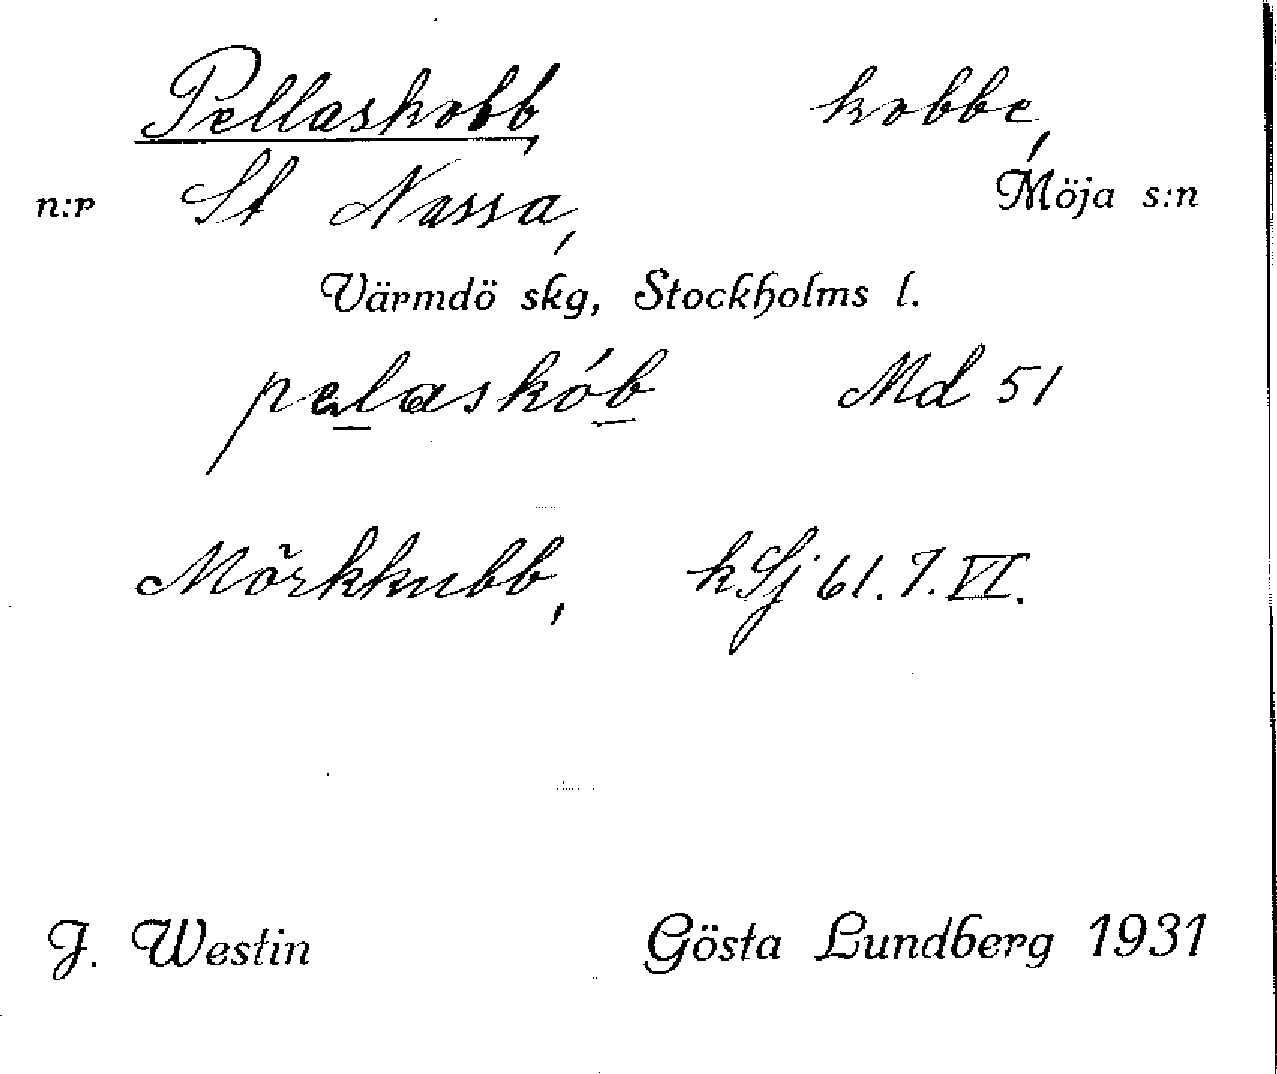 Pellaskobb, kobbe,
n:r St Nassa, Möja s:n
Värmdö skg, Stockholms l.
pelaskób Md 51
Mörkkubb, kSj 61.7.VI.
J. Westin Gösta Lundberg 1931